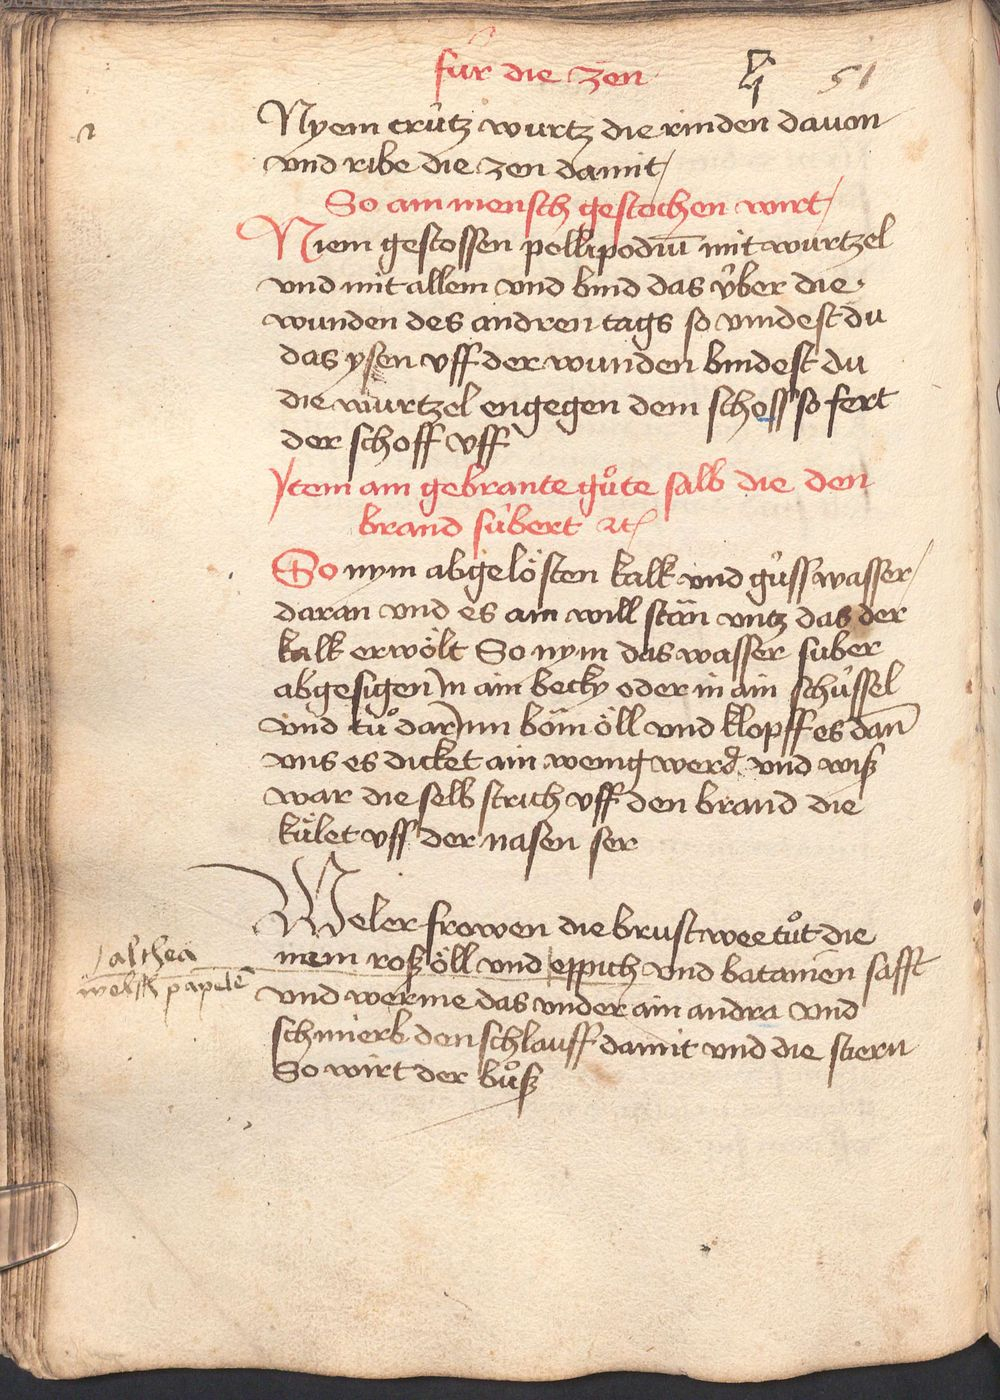 für die zen 51
Nyem crütz wurtz die rinden dauon
vnd ribe die zen damit
So ain mensch gestochen wirt
Niem gestossen pollipodiū mit wurtzel
vnd mit allem vnd bind das v̊ber die
wunden des andren tags so vindest du
das ysen vff der wunden bindest du
die wurtzel engegen dem schoss so fert
der schoff vff
Item ain gebrante gůte salb die den
brand sübert
So nym abgelösten kalk vnd güss wasser
daran vnd es ain will stän vntz das der
kalk erwölt So nym das wasser suber
abgesigen In ain becky oder in ain schüssel
vnd tů dar Inn böm öll vnd klopff es dañ
vns es dicket ain wenig werd vnd wiß
war die selb strich vff den brand die
kület vff der nasen ser
Weler frowen die brust wee tůt die
nem roß öll vnd eppich vnd batanien safft
vnd werme das vnder ain andra vnd
schmierb den schlauff damit vnd die stiern
So wirt der bůß
althea
welsch papelē